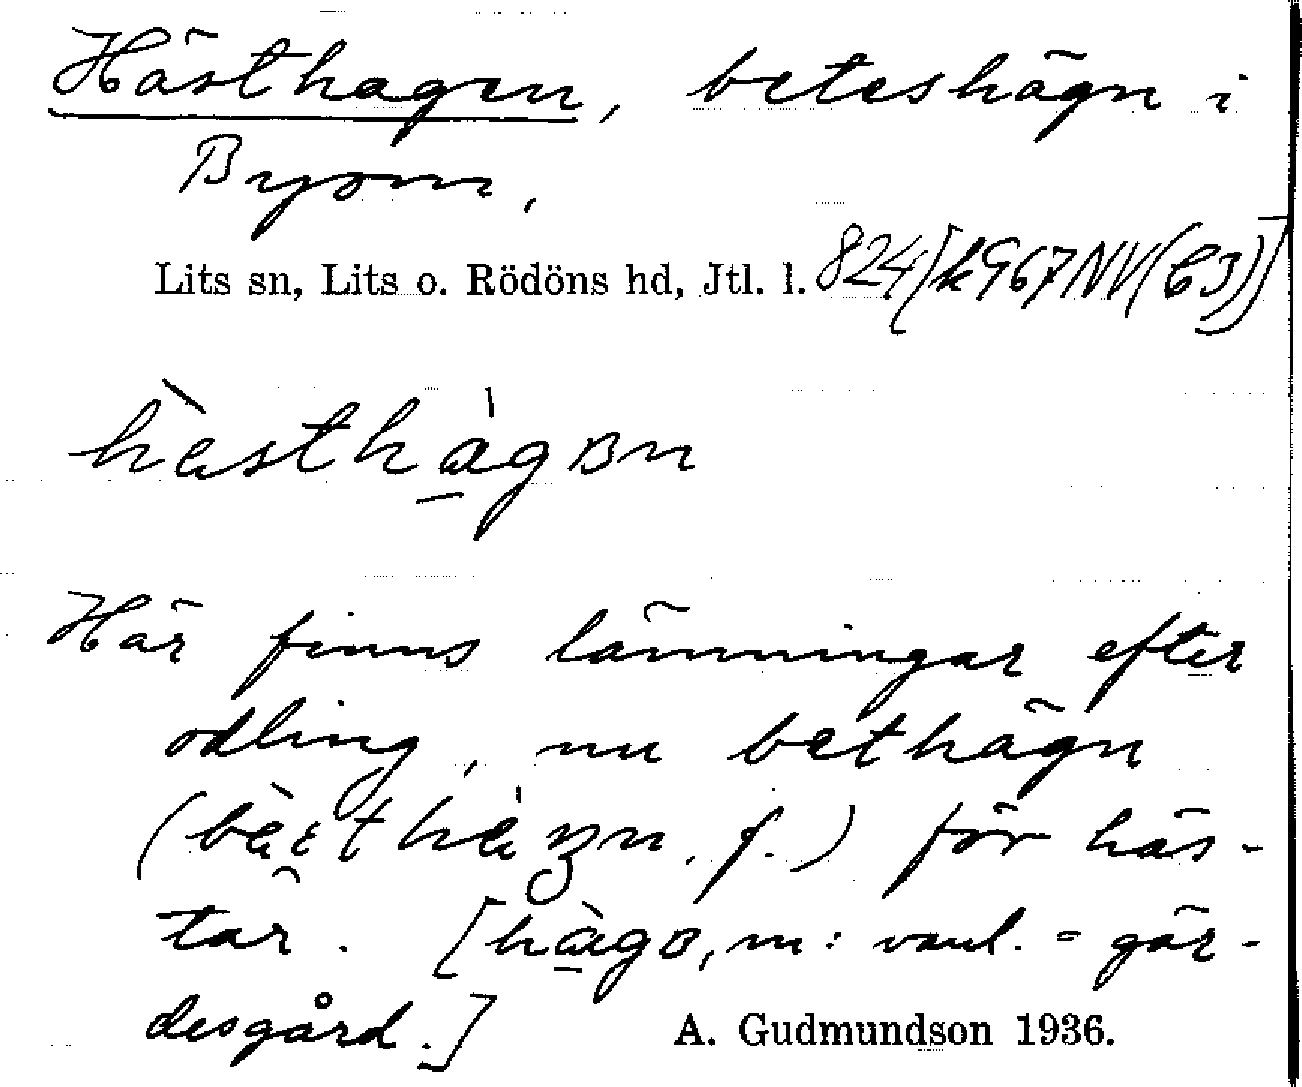 Hästhagen, beteshägn i
Byom,
Lits sn, Lits o. Rödöns hd, Jtl. l. 824 [k967NV(CJ)]
Här finns lämningar efter
odling, nu bethägn
för häs-
tar. m: vanl. = gär-
desgård.]
A. Gudmundson 1936.